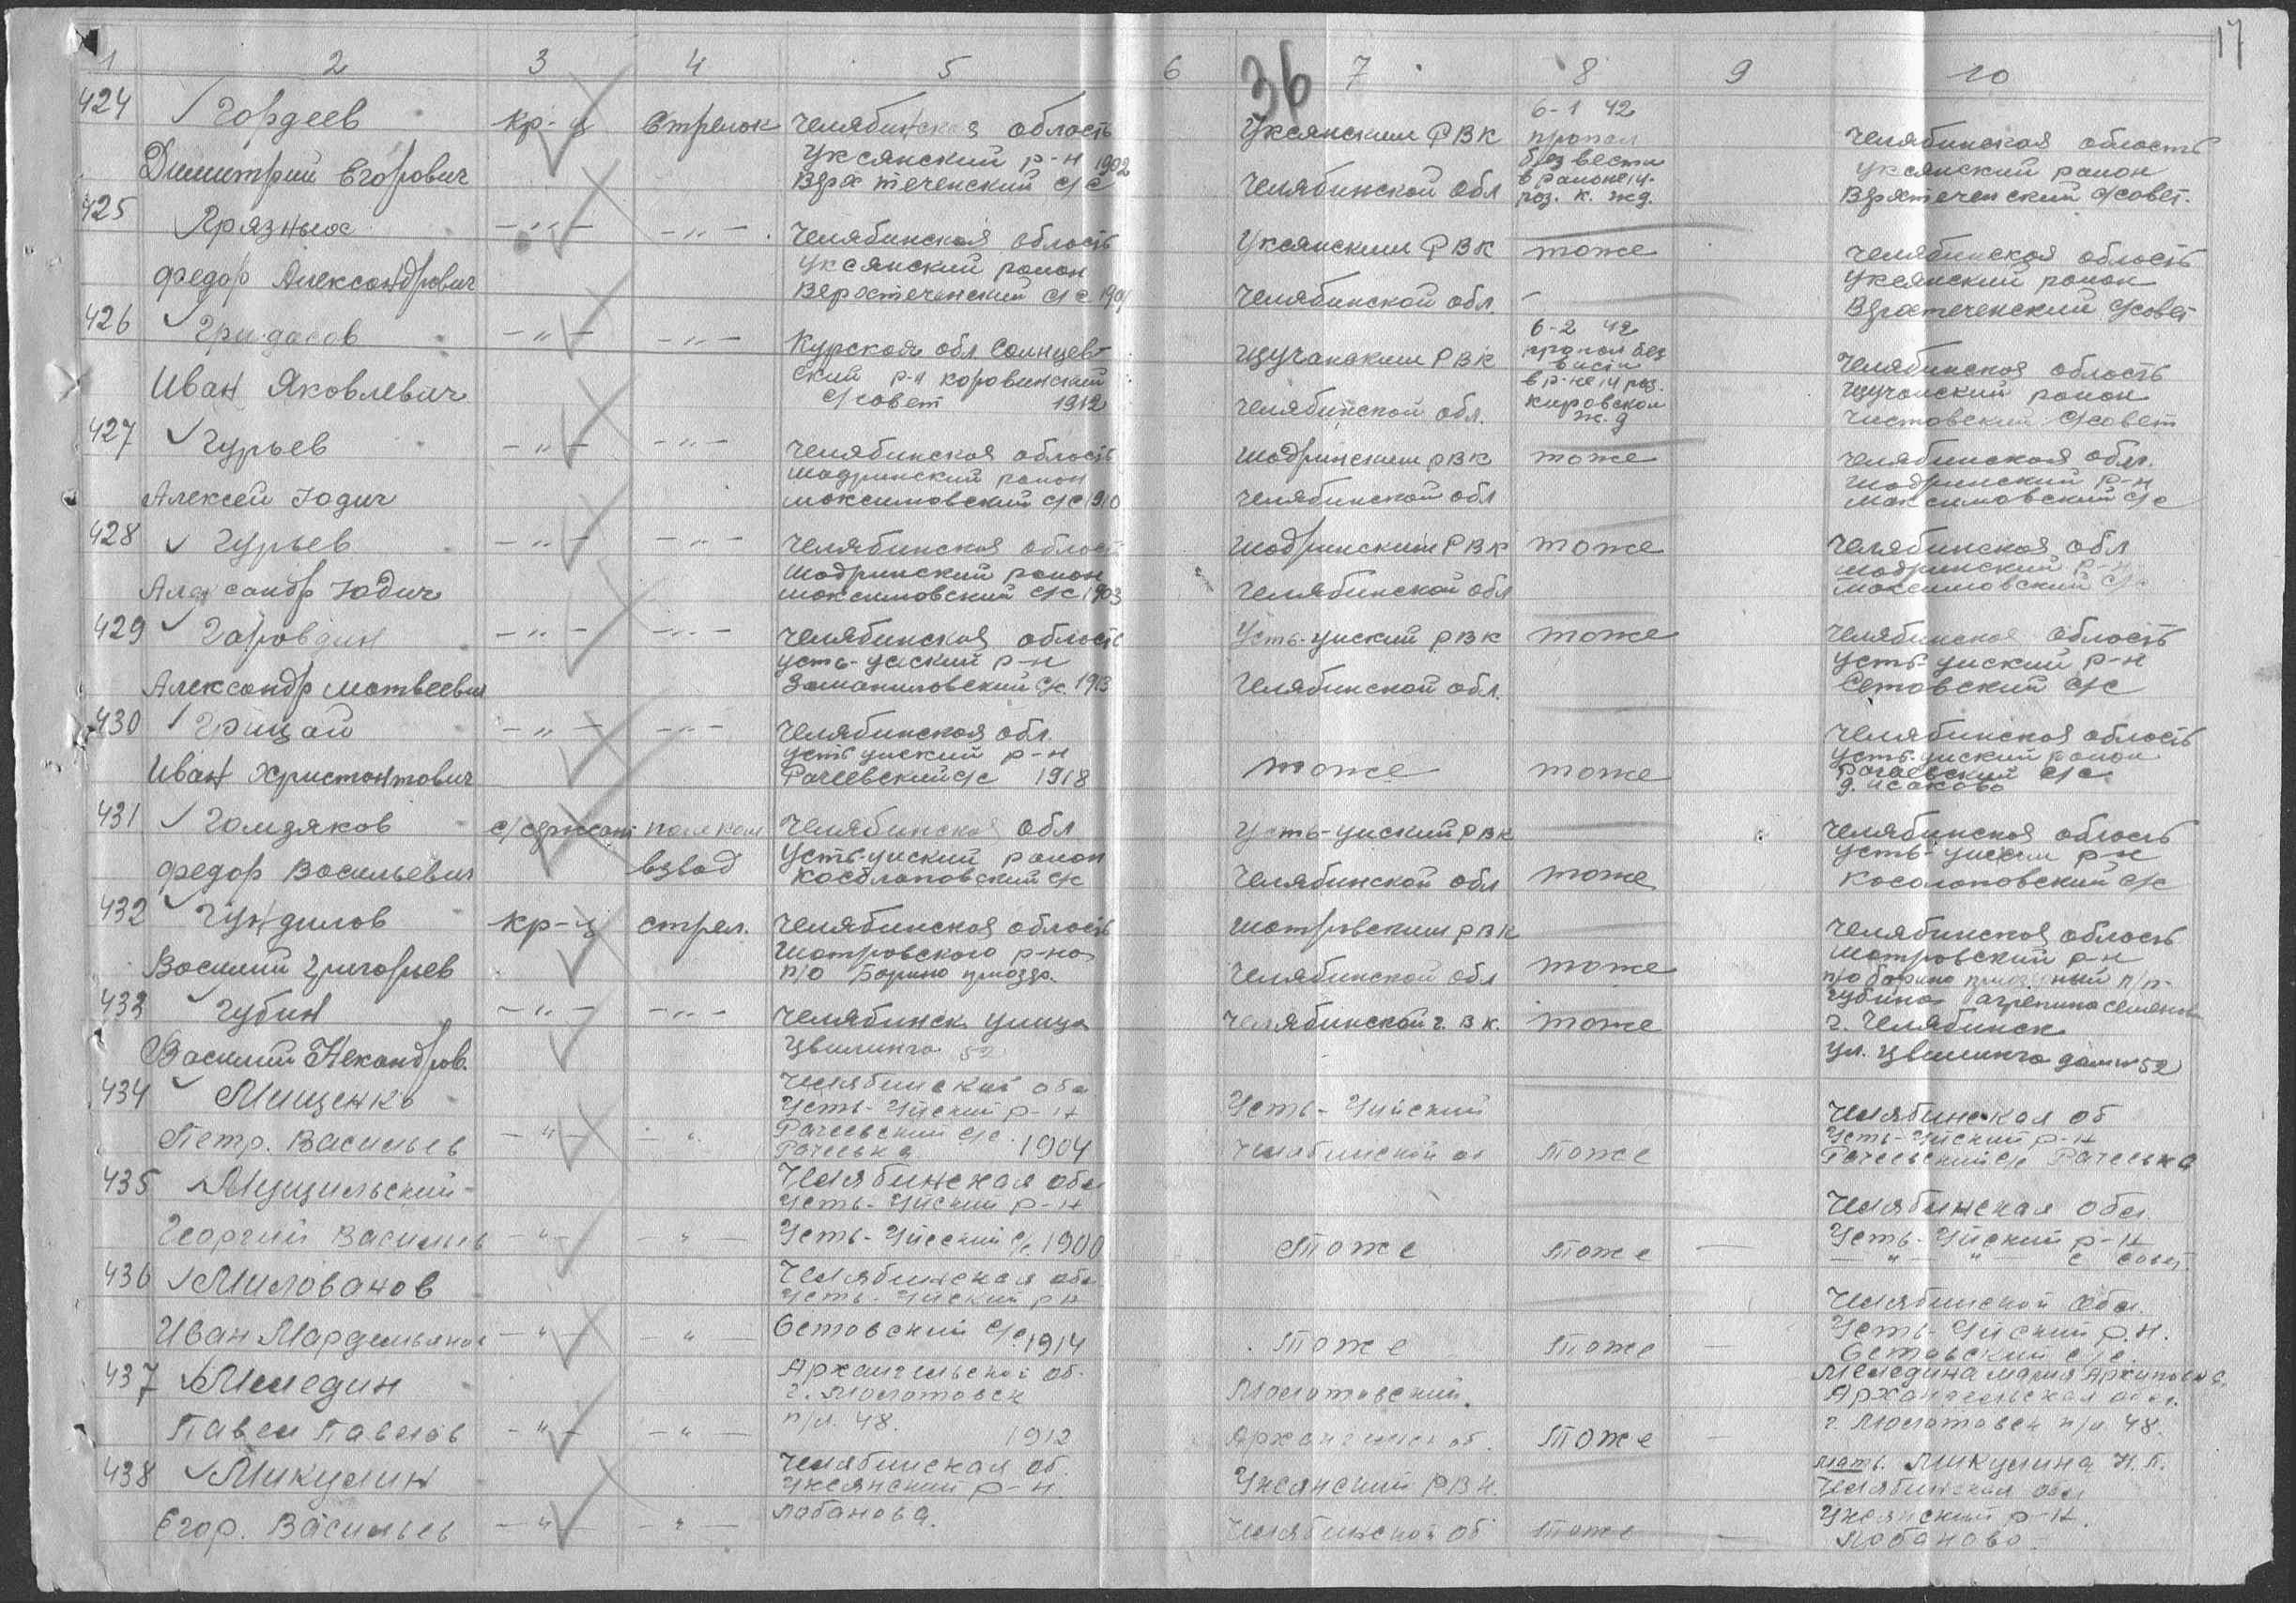 17
36
1 2 3 4 5 6 7 8 9 10
424 Гордеев Димитрий Егорович
кр-ц
Стрелок
Челябинская область
Уксянский р-н 1902
Верхтеченский с/с
Уксянским РВК
Челябинской обл
6-1 42
пропал
без вести
в районе 14
раз. К. жд.
Челябинская область
Уксянский район
Верхтеченский с/совет.
425 Грязных
Федор Александрович
-"- -"-
Челябинская область
Уксянский район
Верхтеченский с/с 1901
Уксянским РВК
Челябинской обл.
тоже
Челябинская область
Уксянский район
Верхтеченский с/совет
426 Гридасов
Иван Яковлевич
-"- -"-
Курская обл Солнцев-
ский р-н Коровинский
с/совет 1912
Щучанским РВК
Челябинской обл.
6-2 42
пропал без
вести
в р-не 14 раз.
Кировской
ж.д
Челябинская область
Щучанский район
Чистовский с/совет
427 Гурьев
Алексей Юдич
-"- -"-
Челябинская область
Шадринский район
Максимовский с/с 1910
Шадринским РВК
Челябинской обл
тоже
Челябинская обл.
Шадринский р-н
Максимовский с/с
428 Гурьев
Александр Юдич
-"- -"-
Челябинская область
Шадринский район
Максимовский с/с 1903
Шадринским РВК
Челябинской обл
тоже
Челябинская обл
Шадринский р-н
Максимовский с/с
429 Гаровдин
Александр Матвеевич
-"- -"-
Челябинская область
Усть-уйский р-н
с/с 1913
Усть-уйский РВК
Челябинской обл.
тоже
Челябинская область
Усть-уйский р-н
Сетовский с/с
430 Грицай
Иван Христонтович
-"- -"-
Челябинская обл.
Усть уйский р-н
Рачеевский с/с 1918
тоже
тоже
Челябинская область
Усть-уйский район
Рачеевский с/с
д. Исаково
431 Гомзяков
Федор Васильевич
с/сержант
пом ком
взвод
Челябинская обл
Усть-уйский район
Косолаповский с/с
Усть-уйский РВК
Челябинской обл
тоже
Челябинская область
Усть-уйский р-н
Косолаповский с/с
432 Гундилов
Василий Григорьев
кр-ц
стрел.
Челябинская область
Шатровского р-на
п/о Барино
Шатровским РВК
Челябинской обл
тоже
Челябинская область
Шатровский р-н
п/о Барино
433 Губин
Василий
-"- -"-
Челябинск улица
Цвилинга 52
Челябинской г. В К.
тоже
Губина Агрепина Семенов
г. Челябинск
ул. Цвилинга дом № 52
434 Мищенко
Петр. Васильев
-"- -"-
Челябинской обл
Усть-Уйский р-н
Рачеевский с/с.
Рачеевка 1904
Усть-Уйский
Челябинской об
тоже
Челябинская об
Усть-Уйский р-н
Рачеевский с/с Рачеевка
435 Мущильский
Георгий Васильев
-"- -"-
Челябинская обл
Усть-Уйский р-н
Усть-Уйский с/с 1900
тоже
тоже
—
Челябинская обл.
Усть-Уйский р-н
— " — " — с совет.
436 Милованов
Иван Мардельянов
-"- -"-
Челябинская обл
Усть-Уйский р-н
Сетовский с/с. 1914
тоже
тоже
—
Челябинской обл.
Усть-Уйский р.н.
Сетовский с/с.
437 Меледин
Павел Павлов
-"- -"-
Архангельской об.
г. Молотовск
п/я. 48. 1912
Молотовский.
Архангельск об.
тоже
—
Меледина Мария Архиповна.
Архангельская обл.
г. Молотовск п/я 48.
438 Микулин
Егор. Васильев
-"- -"-
Челябинская об.
Уксянский р-н.
Лобанова.
Уксянский РВК.
Челябинской об
тоже
—
мать. Микулина Н. П.
Челябинская обл
Уксянский р-н.
Лобаново.